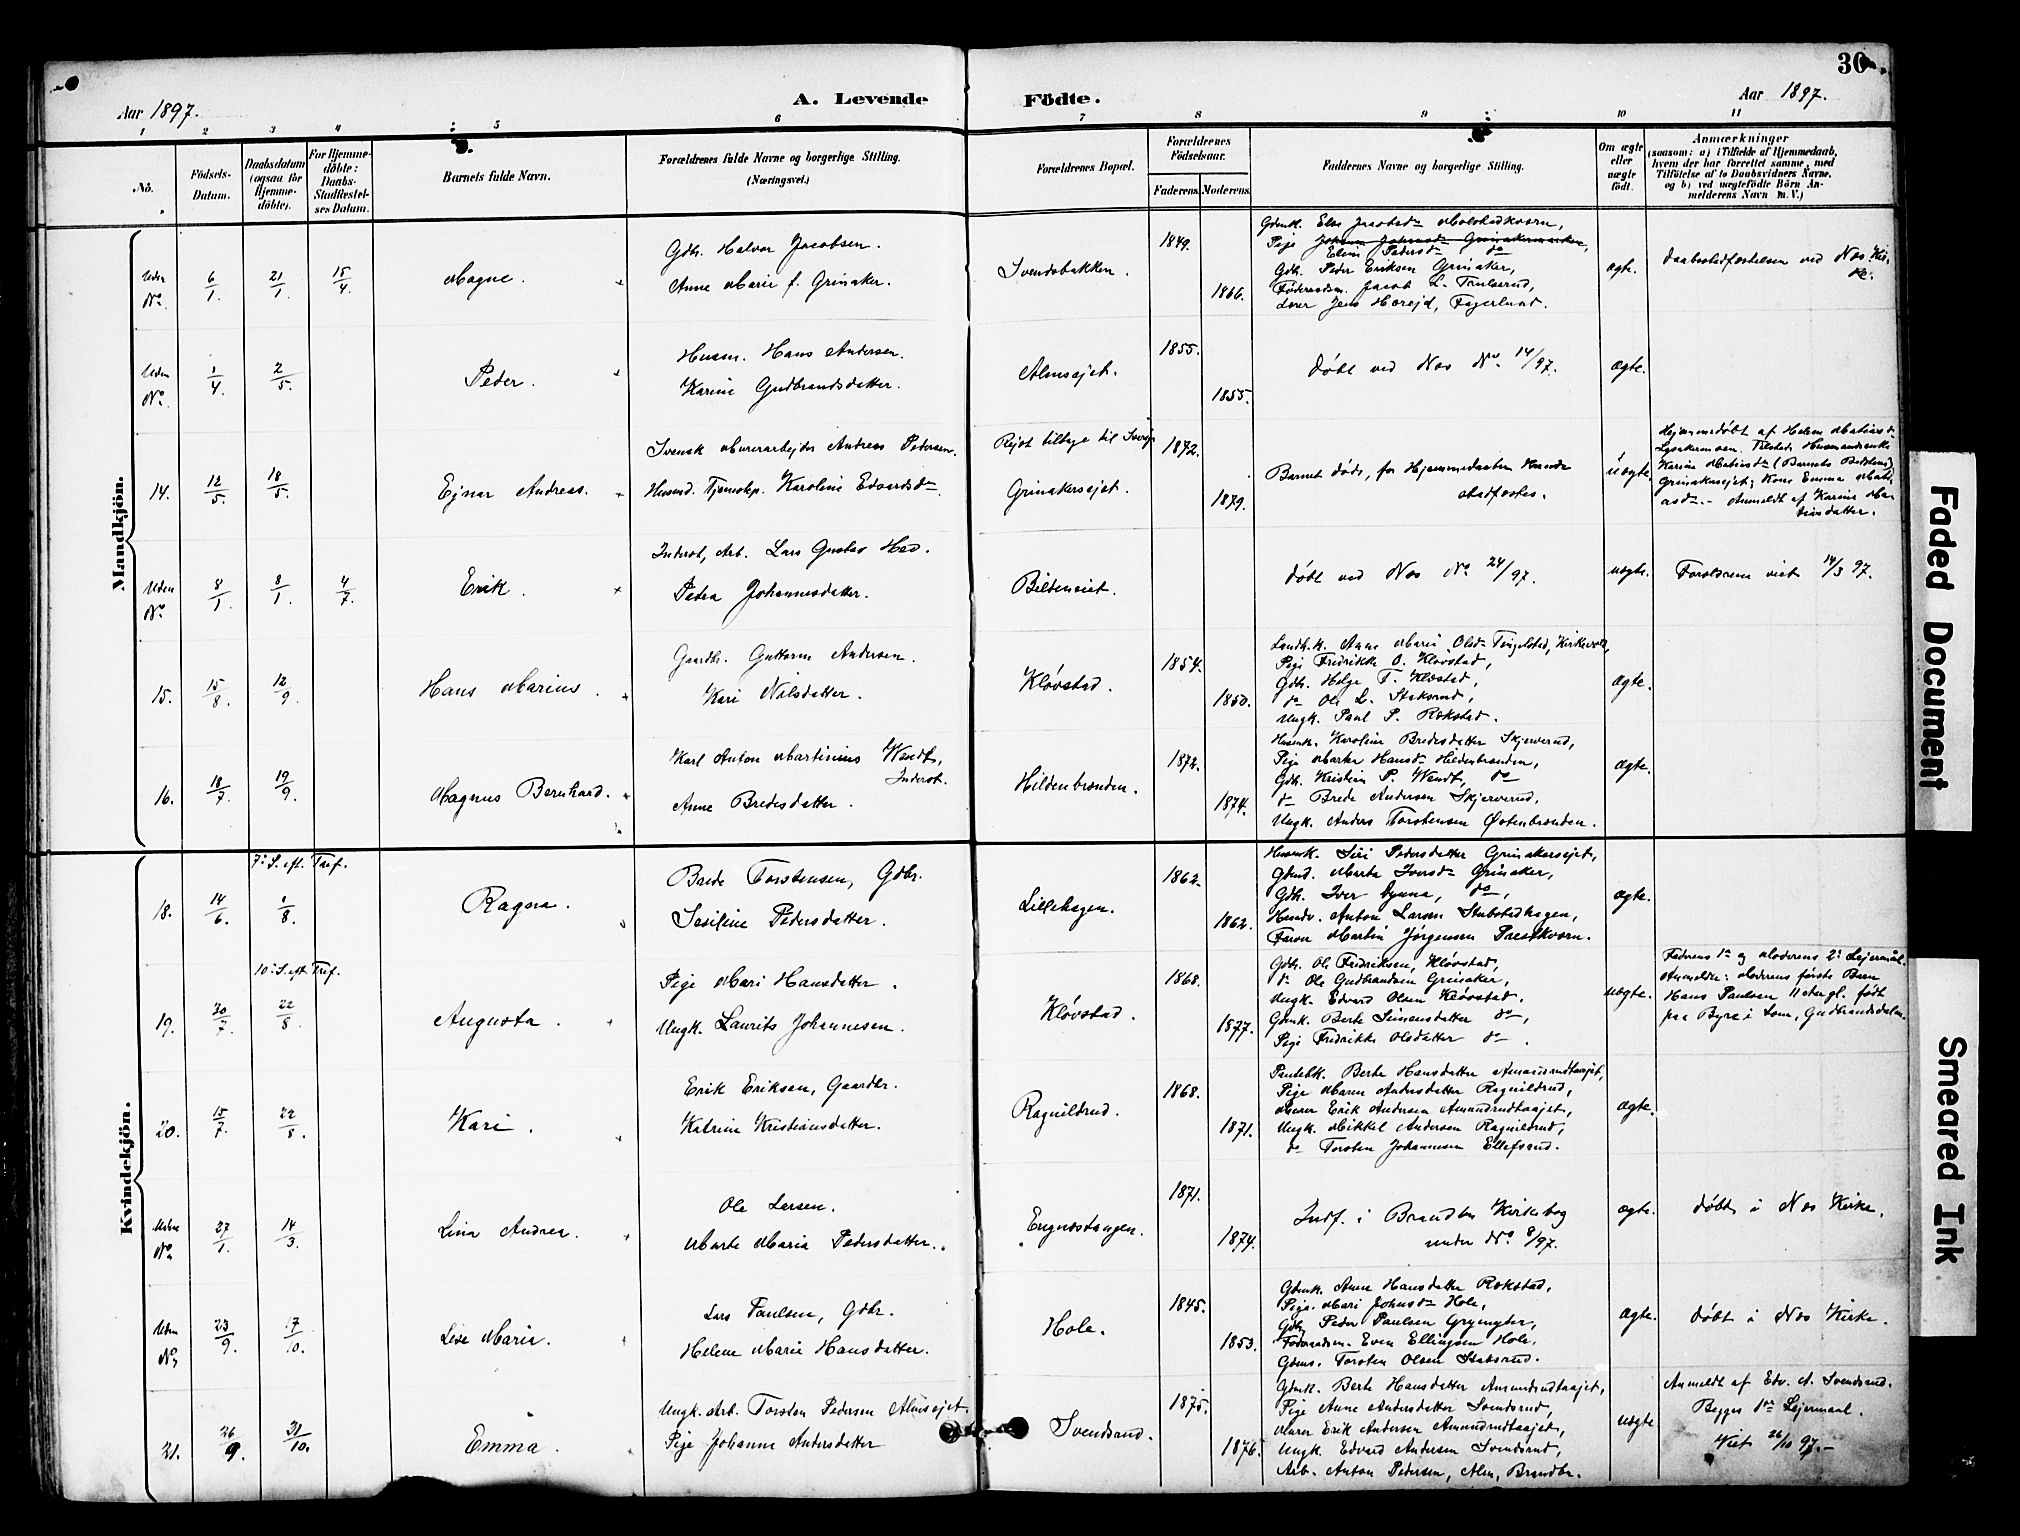 30
Aar 1897.
A. Levende Födte.
Aar 1897.
1 2 3 4 5 6 7 8 9 10 11
No.
Födsels-Datum.
Daabsdatum (ogsaa for Hjemme-döbte).
For Hjemme-döbte: Daabs-Stadfæstel-ses Datum.
Barnets fulde Navn.
Forældrenes fulde Navne og borgerlige Stilling.
(Næringsvei.)
Forældrenes Bopæl.
Forældrenes Födselsaar.
Faderens. Moderens.
Faddernes Navne og borgerlige Stilling.
Om ægte eller uægte födt.
Anmærkninger
(saasom: a) i Tilfælde af Hjemmedaab,
hvem der har forrettet samme, med
Tilföielse af to Daabsvidners Navne,
og b) ved uægtefödte Börn An-
melderens Navn m. V.)
Mandkjön.
Uden No. 6/1 21/1 15/4 Magne.
Gdb. Halvor Jacobsen.
Anne Marie f. Grinaker.
Svendsbakken.
1849.
1866.
Gdmk. Else Jacobsdr Molstadkværn,
Pige
Eline Pedersdr do
Gdb. Peder Eriksen Grinaker,
Föderaadsm. Jacob L. Trulserud,
Lærer Jens Hæreid, Fagerlund.
ægte.
Daabsstadfæstelsen ved Næs Kir-
ke.
Uden No. 1/4 2/5 Peder.
Husm. Hans Andersen.
Karine Gudbrandsdatter.
Almsejet.
1855.
1855.
Döbt ved Næs No 14/97.
ægte.
14. 12/5 18/5 Ejnar Andreas.
Svensk Murerarbejder Andreas Pedersen.
Husmd. Tjenestep. Karoline Edvardsdr
Rejst tilbage til Sverge
Grinakersejet.
1872.
1879.
Barnet döde, för Hjemmedaaben kunde
stadfæstes.
uægte.
Hjemmedöbt af Helene Matiasdr
Karine Matiasdr (Barnets Bedstemo)
Grinakersejet; Kone Emma Mati-
asdr. - Anmeldt af Karine Ma-
tiasdatter.
Uden No. 8/1 8/1 4/7 Erik.
Inderst, Arb. Lars Gustav Hed.
Petra Johannesdatter.
Bildeneiet.
Döbt ved Næs No 24/97.
uægte.
Forældrene viet 14/3 97.
15. 15/8. 12/9 Hans Marius.
Gaardbr. Guttorm Andersen.
Kari Nilsdatter.
Klövstad.
1854.
1850.
Landh.k. Anne Marie Olsdr Tingelstad, Kirkevold,
Pige Fredrikke O. Klövstad,
Gdb. Helge T. Klövstad,
do Ole L. Staksrud,
Ungk. Paul P. Rækstad.
ægte.
16. 18/7. 19/9. Magnus Bernhard.
Karl Anton Martinius Wendt,
Inderst.
Anne Bredesdatter.
Hildenbrænden.
1872.
1874.
Husmk. Karoline Bredesdatter Skjerverud,
Pige Marka Hansdr Hildenbrænden,
Gdb. Kristian P. Wendt, do
do Brede Andersen Skjerverud,
Ungk. Anders Torstensen Östenbrænden.
ægte.
Kvindekjön.
7. S. eft. Tref.
18. 14/6. 1/8. Ragna.
Brede Torstensen, Gdbr.
Sesiline Pedersdatter.
Lillehagen.
1862.
1862.
Husmk. Siri Pedersdatter Grinakersejet,
Gdmd. Marta Iversdr Grinaker,
Gdb. Iver Dynna, do,
Husdr. Anton Larsen Stubstadhagen,
Farver Martin Jörgensen Prestkværn.
ægte.
10. S. eft. Tref.
19. 20/7. 22/8 Augusta.
Pige Mari Hansdatter.
Ungk. Laurits Johannesen.
Klövstad.
1868.
1877.
Gdb. Ole Fredriksen, Klövstad,
do Ole Gudbrandsen Grinaker,
Ungk. Edvard Olsen Klövstad.
Gdmk. Berte Simensdatter do,
Pige Fredrikke Olsdatter do.
uægte.
Faderens 1ste og Moderens 2det Lejermål.
Anmeldte: Moderens förste Barn
Hans Paulsen 11 Aar gl. födt
paa Byre i Lom, Gudbrandsdalen.
20. 15/7. 22/8. Kari.
Erik Eriksen, Gaardbr.
Katrine Kristiansdatter.
Ragnildrud.
1868.
1871.
Berte Hansdatter Amundrudtaajet,
Pige Maren Andersdatter Ragnildrud,
Murer Erik Andersen Amundrudtaajet,
Ungk. Mikkel Andersen Ragnildrud,
do Torsten Johannesen Ellefsrud.
ægte.
Uden No. 27/1. 14/3. Lina Andrea.
Ole Larsen.
Marte Maria Pedersdatter.
Engnæstangen.
1871.
1874.
Indf. i Brandbu Kirkebog
under No 8/97.
ægte.
Döbt i Næs Kirke.
Uden No. 23/9. 17/10. Lise Marie.
Lars Paulsen, Gdbr.
Helene Marie Hansdatter.
Hole.
1845.
1853.
Gdmk. Anne Hansdatter Rækstad,
Pige. Mari Johnsdr Hole,
Gdb. Peder Paulsen Gryengten,
Föderaadsm. Even Ellingsen Hole,
Gdms. Torsten Olsen Stabsrud.
ægte.
Döbt i Næs Kirke.
21. 26/9. 31/10. Emma.
Ungk. Arb. Torsten Pedersen Almsejet.
Pige Johanne Andersdatter
Svendsrud.
1875.
1876.
Gdmk. Berte Hansdatter Amundrudtaajet,
Pige Anne Andersdatter Svendsrud,
Murer Erik Andersen Amundrudtaajet,
Ungk. Edvard Andersen Svendsrud,
Arb. Anton Pedersen, Alm, Brandbu.
uægte
Anmeldt af Edv. A. Svendsrud.
Begges 1ste Lejermaal.
Viet 26/10 97.-
Faded Document
Smeared Ink